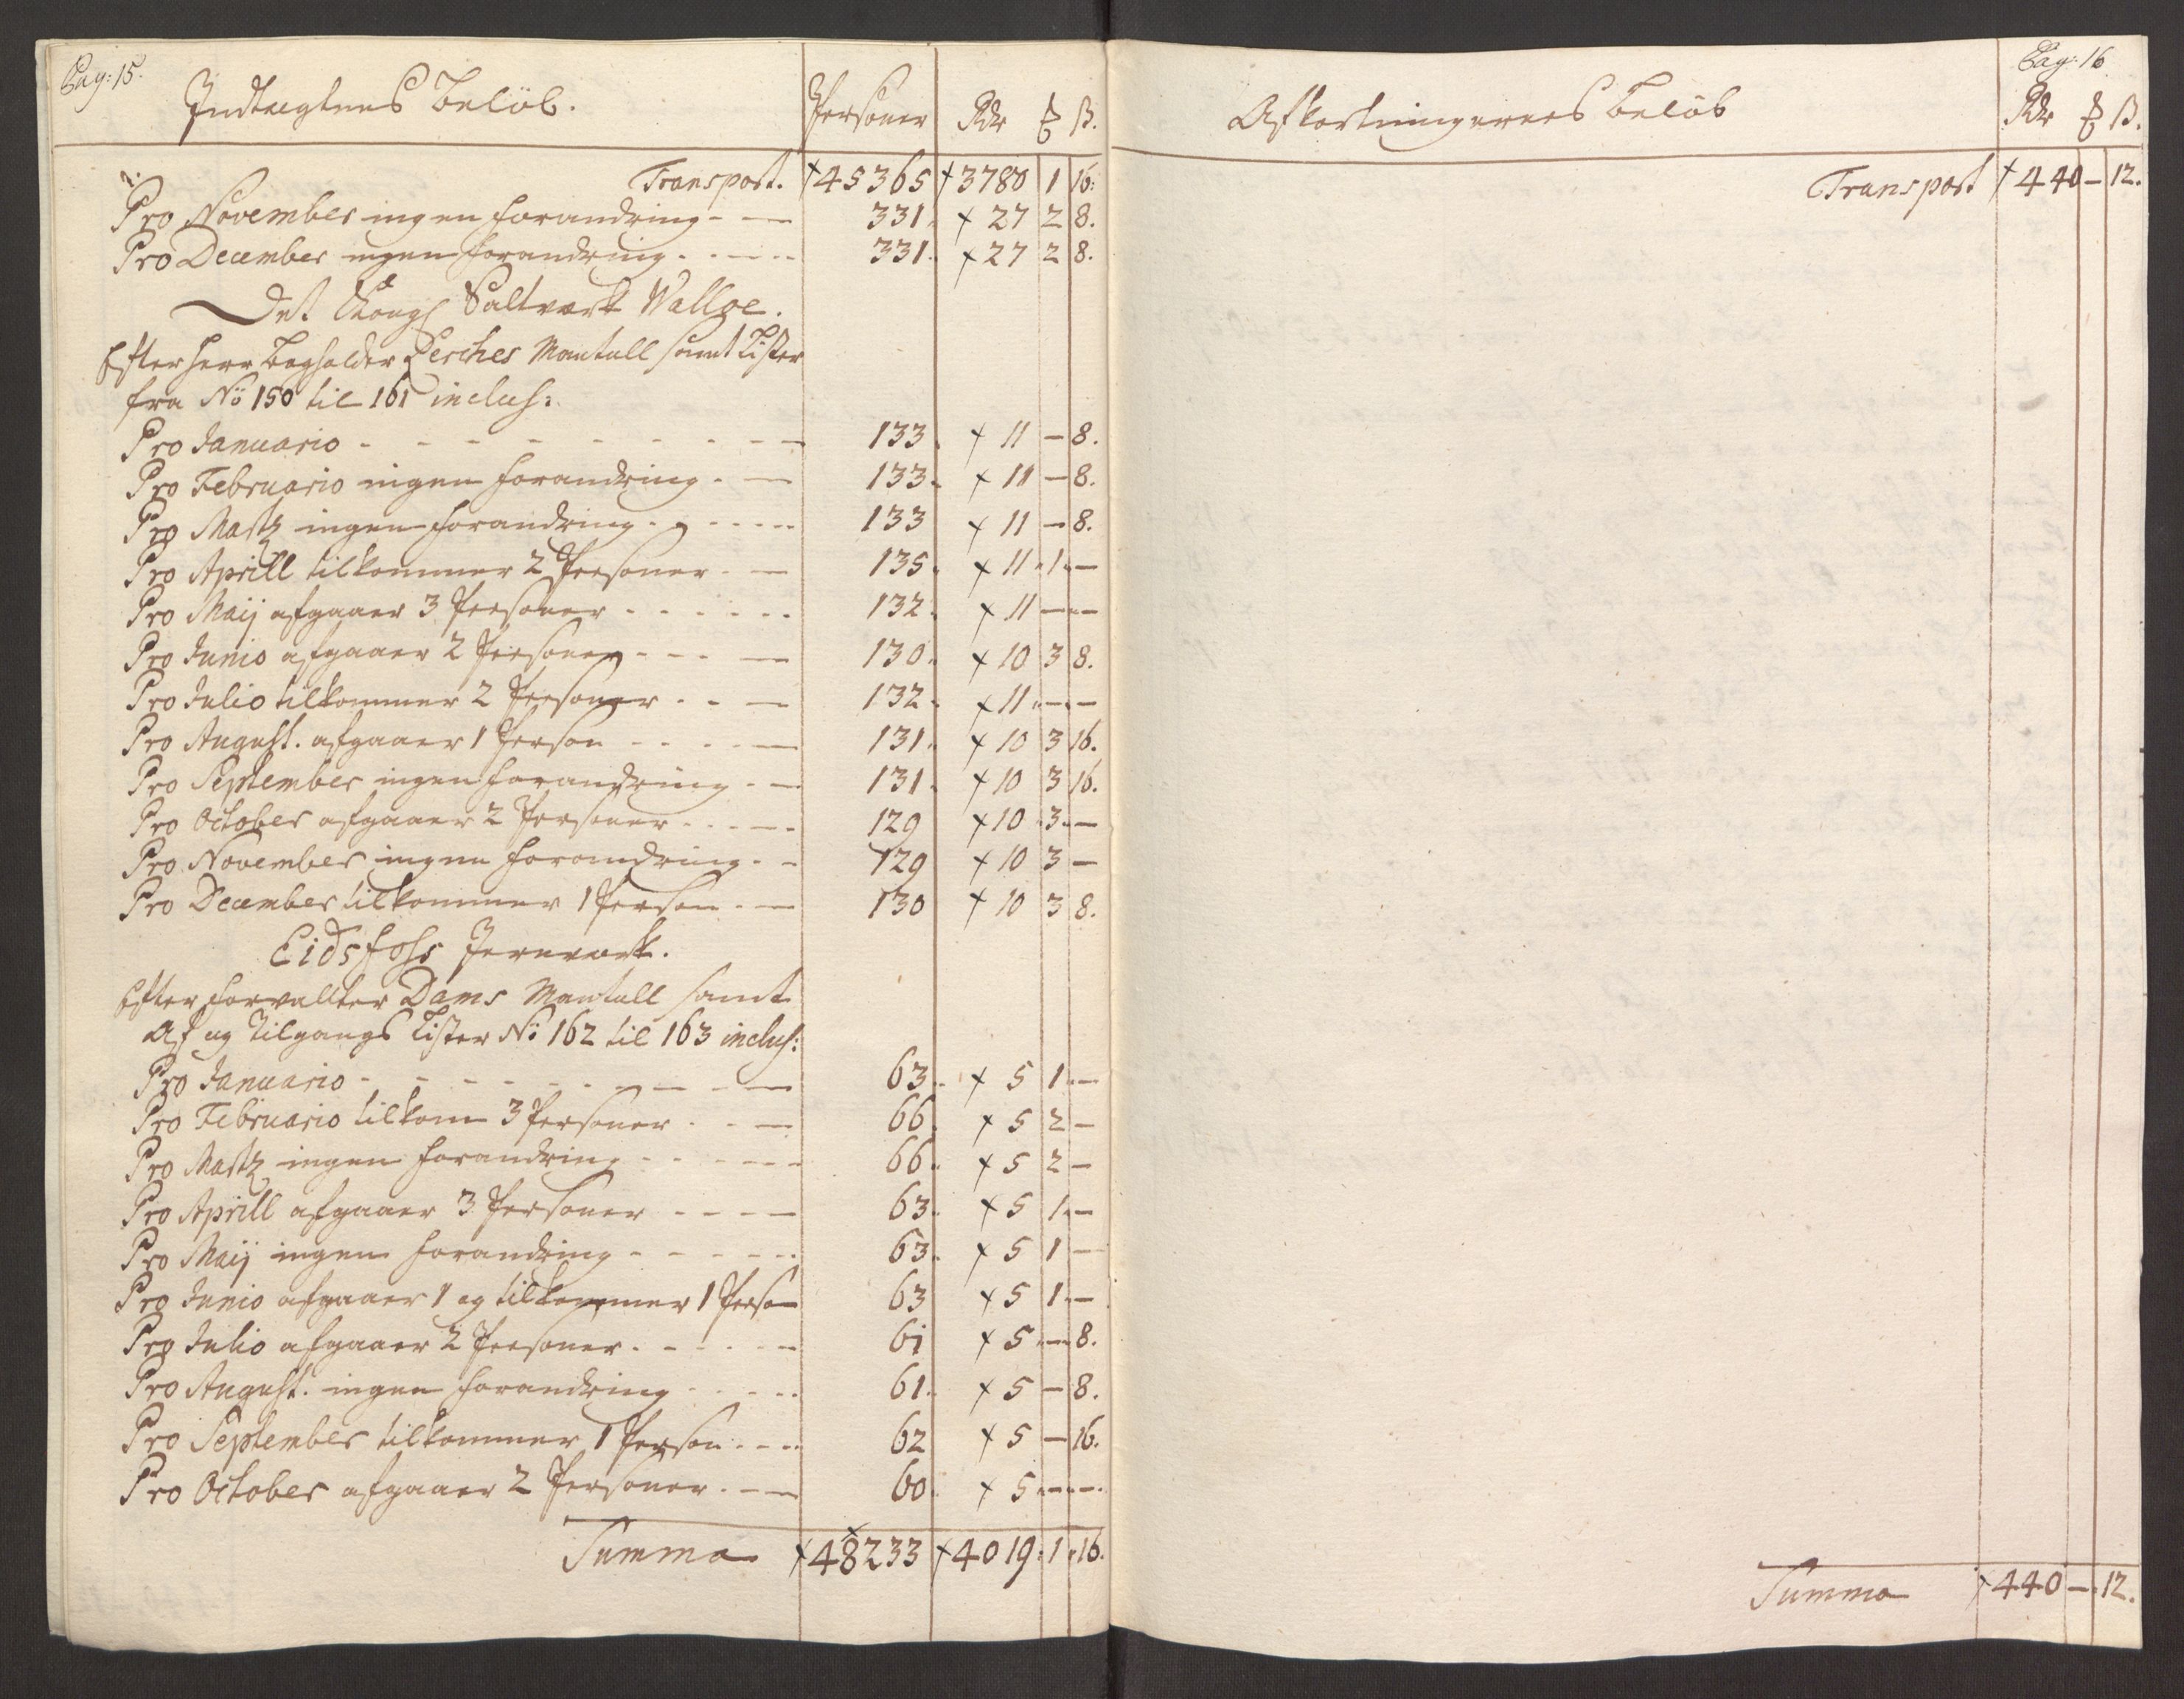 Pag: 15.
Indtægtens Beløb. Personer Rdr ß.
Transport. 45365 3780 1 16:
Pro November ingen forandring 331. 27 2 8.
Pro December ingen forandring 331. 27 2 8.
Det Kongl Saltværk Walløe.
Efter Herr Bogholder Lerches Mantall samt Lister
fra No 150 til 161 inclus:
Pro Januario 133. 11 — 8.
Pro Februario ingen forandring 133. 11 — 8.
Pro Martz ingen forandring 133 11 — 8.
Pro Aprill tilkommer 2 Personer 135. 11 1 —
Pro Maij afgaaer 3 Personer 132. 11 — —
Pro Junio afgaaer 2 Personer 130. 10 3 8.
Pro Julio tilkommer 2 Personer 132. 11 — —
Pro August. afgaaer 1 Person 131. 10 3 16.
Pro September ingen forandring 131. 10 3 16.
Pro October afgaaer 2 Personer 129 10 3 —
Pro November ingen forandring 129 10 3 —
Pro December tilkommer 1 Person 130 10 3 8.
Eidsfoss Jernværk.
Efter Forvallter Dams Mantall samt
Af og Tilgangs Lister No 162 til 163 inclus:
Pro Januario 63. 5 1 —
Pro Februario tilkom 3 Personer 66. 5 2 —
Pro Martz ingen forandring 66. 5 2 —
Pro Aprill afgaaer 3 Personer 63. 5 1 —
Pro Maij ingen forandring 63. 5 1 —
Pro Junio afgaaer 1 og tilkommer 1 Person 63 5 1 —
Pro Julio afgaaer 2 Personer 61 5 — 8.
Pro August. ingen forandring 61. 5 — 8.
Pro September tilkommer 1 Person 62 5 — 16.
Pro October afgaaer 2 Personer 60. 5 — —
Summa 48233 4019 1 16.
Pag: 16
Afkortningernes Beløb Rdr ß.
Transport 440 — 12.
Summa 440 — 12.